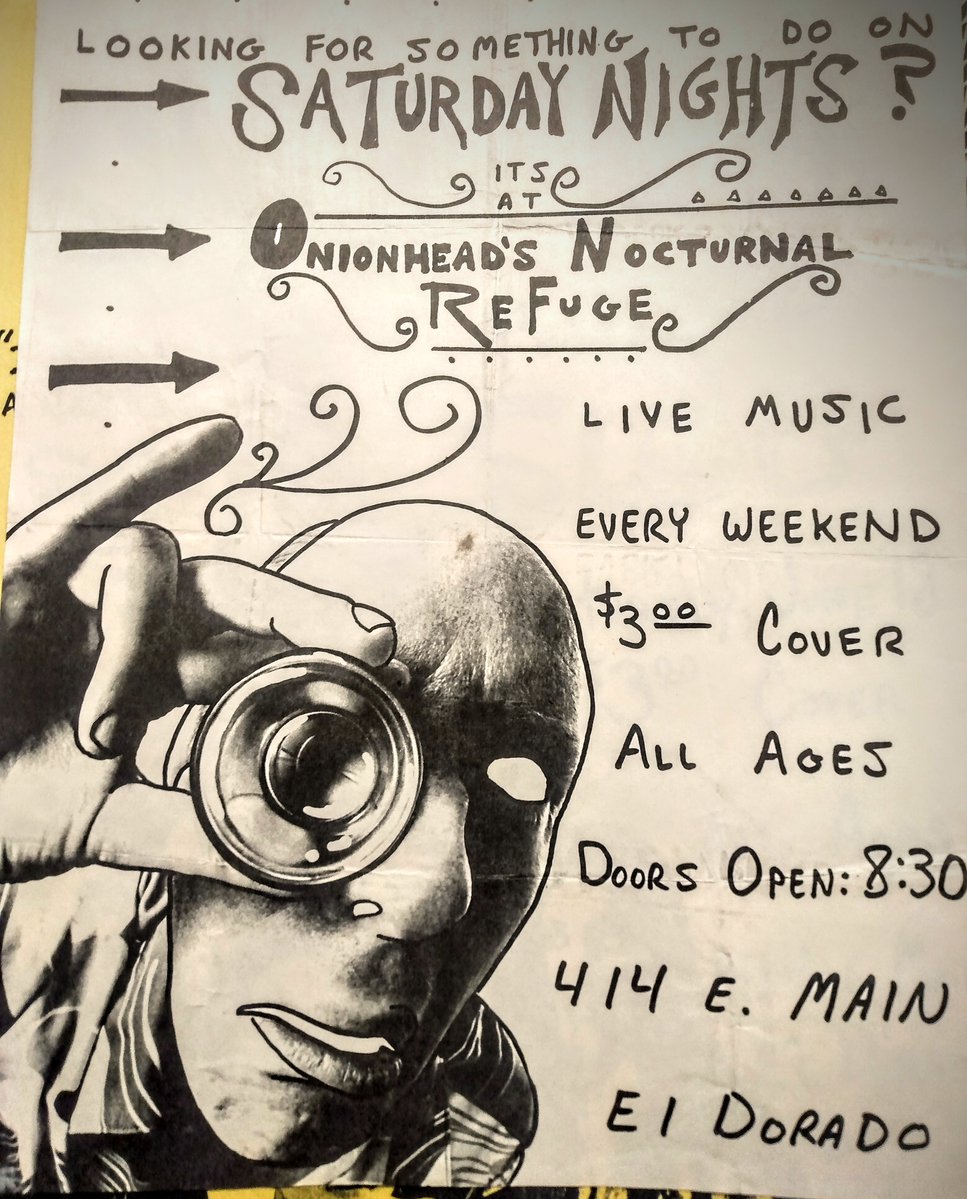 LOOKING FOR SOMETHING TO DO ON
SATURDAY NIGHTS?
ITS
AT
ONIONHEAD'S NOCTURNAL
REFUGE
LIVE MUSIC
EVERY WEEKEND
$3.00 COVER
ALL AGES
DOORS OPEN: 8:30
414 E. MAIN
El DORADO